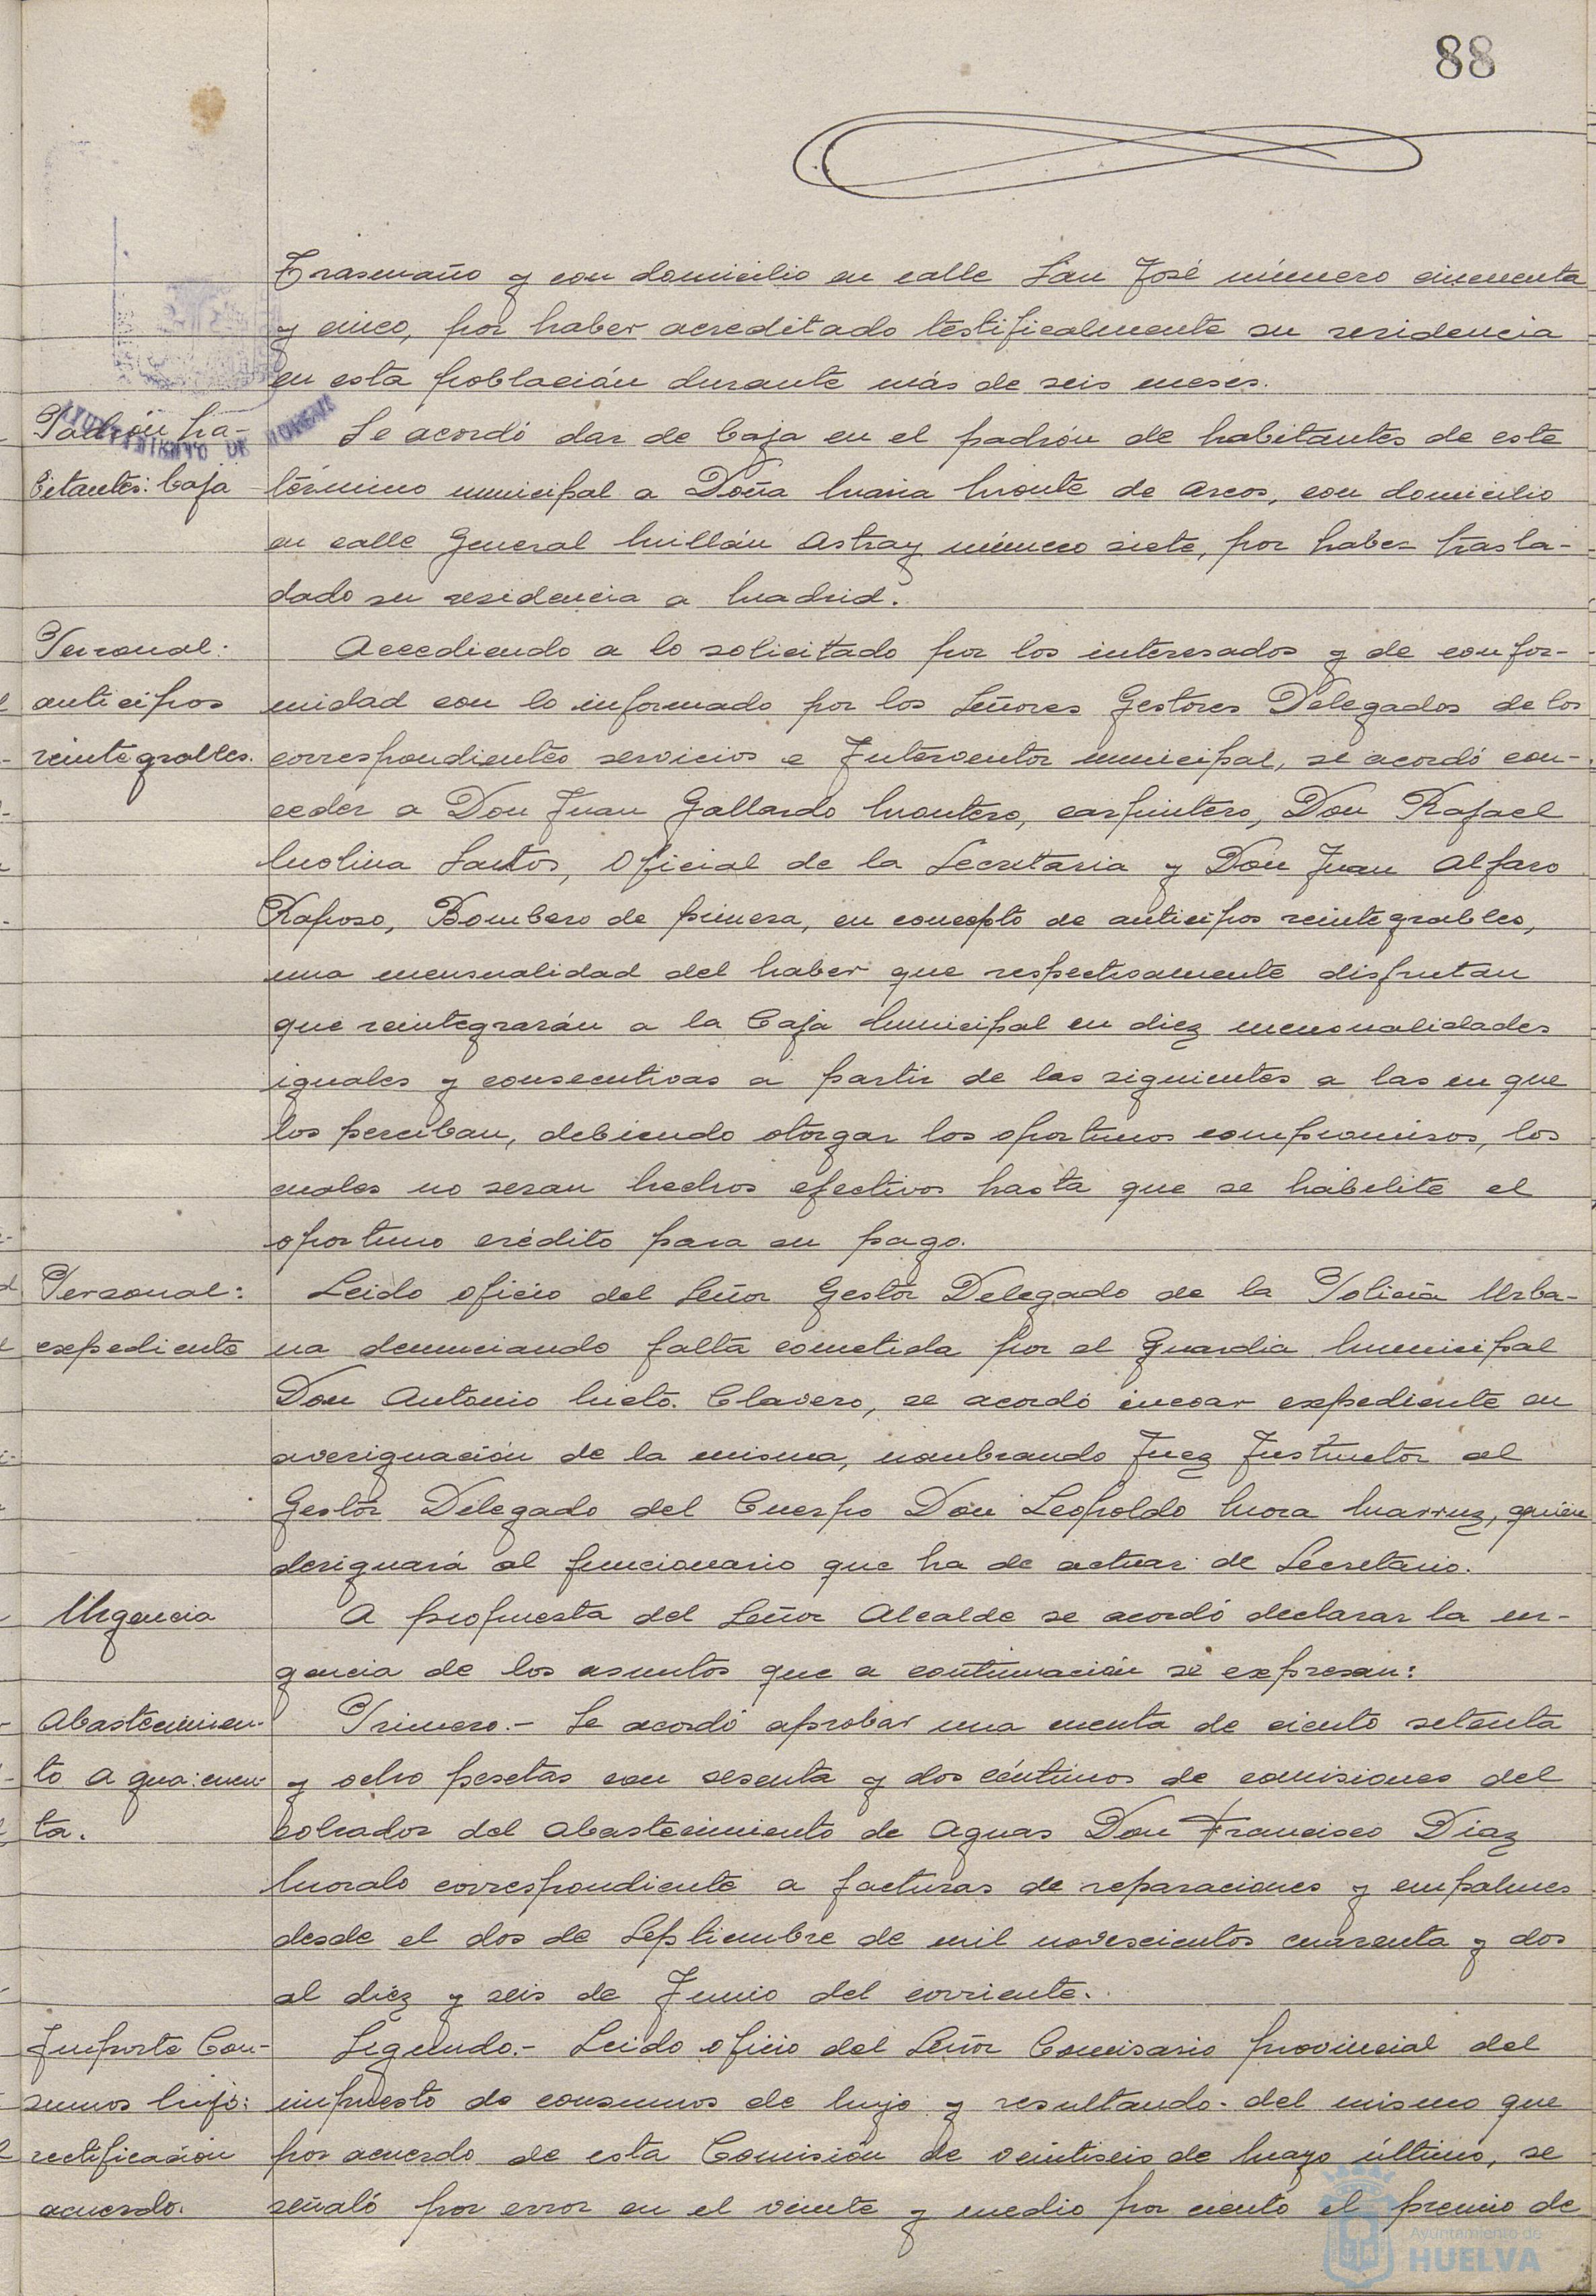 88
Trasmaño y con domicilio en calle San José número cincuenta
y cinco, por haber acreditado testificalmente su residencia
en esta población durante más de seis meses.
Padrón ha-
bitantes: baja
Se acordó dar de baja en el padrón de habitantes de este
término municipal a Doña Maria Monte de Arcos, con domicilio
en calle General Millán Astray número siete, por haber trasla-
dado su residencia a Madrid.
Personal:
anticipos
reintegrables.
Accediendo a lo solicitado por los interesados y de confor-
midad con lo informado por los Señores Gestores Delegados de los
correspondientes servicios e Interventor municipal, se acordó con-
ceder a Don Juan Gallardo Montero, carpintero, Don Rafael
Molina Santos, Oficial de la Secretaria y Don Juan Alfaro
Raposo, Bombero de primera, en concepto de anticipos reintegrables,
una mensualidad del haber que respectivamente disfrutan
que reintegrarán a la Caja Municipal en diez mensualidades
iguales y consecutivas a partir de las siguientes a las en que
los perciban, debiendo otorgar los oportunos compromisos, los
cuales no seran hechos efectivos hasta que se habilite el
oportuno crédito para su pago.
Personal:
expediente
Leido oficio del Señor Gestor Delegado de la Policia Urba-
na denunciando falta cometida por el Guardia Municipal
Don Antonio Nieto Clavero, se acordó incoar expediente en
averiguación de la misma, nombrando Juez Instructor al
Gestor Delegado del Cuerpo Don Leopoldo Mora Marruz, quien
designará al funcionario que ha de actuar de Secretario.
Urgencia
A propuesta del Señor Alcalde se acordó declarar la ur-
gencia de los asuntos que a continuación se expresan:
Abastecimien-
to Agua: cuen-
ta.
Primero.- Se acordó aprobar una cuenta de ciento setenta
y ocho pesetas con sesenta y dos céntimos de comisiones del
cobrador del Abastecimiento de Aguas Don Francisco Diaz
Moralo correspondiente a facturas de reparaciones y empalmes
desde el dos de Septiembre de mil novescientos cuarenta y dos
al diez y seis de Junio del corriente.
Importe Con-
sumos lujo:
rectificación
acuerdo.
Segundo.- Leido oficio del Señor Comisario provincial del
impuesto de consumos de lujo y resultando del mismo que
por acuerdo de esta Comisión de veintiseis de Mayo último, se
señaló por error en el veinte y medio por ciento el premio de
AYUNTAMIENTO DE HUELVA
Ayuntamiento de
HUELVA